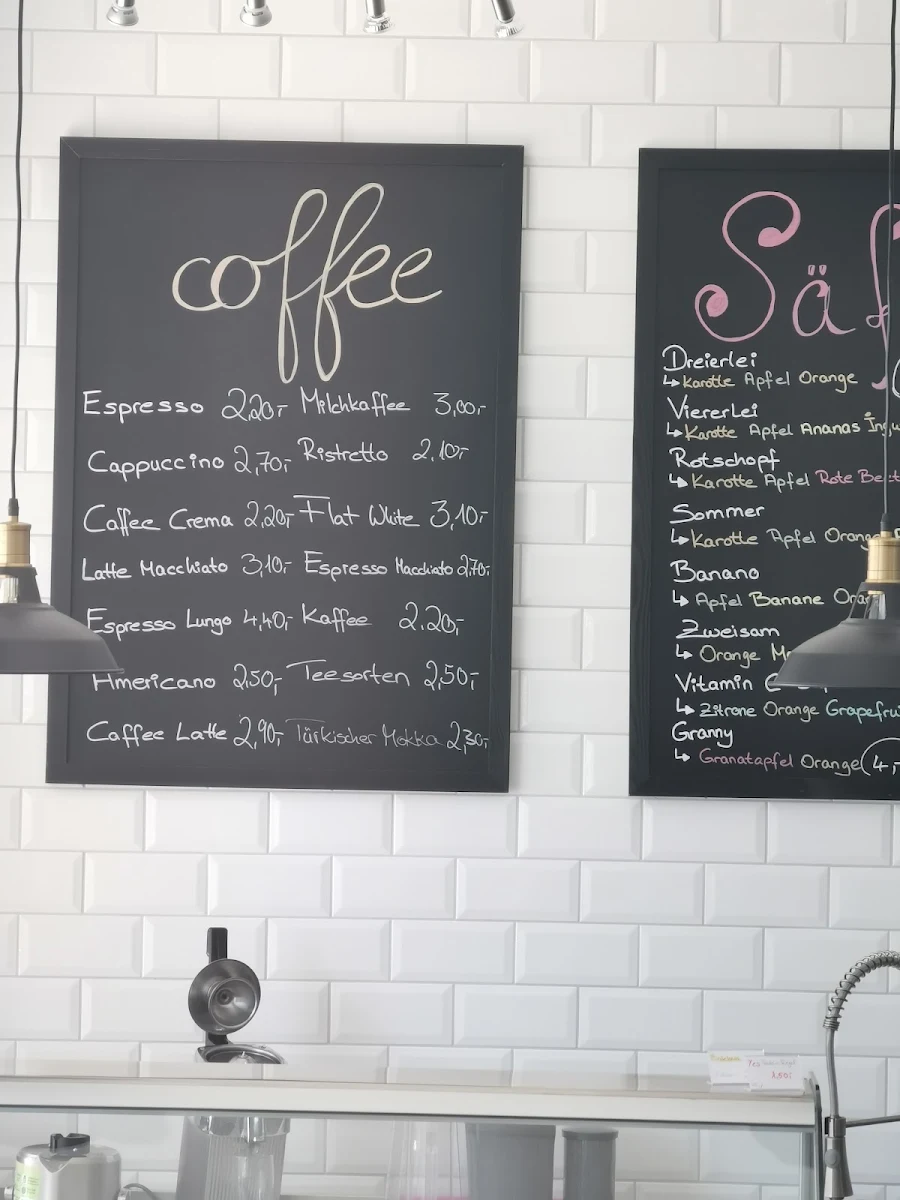 coffee
Espresso 2,20,- Milchkaffee 3,00,-
Cappuccino 2,70,- Ristretto 2,10,-
Caffee Crema 2,20,- Flat White 3,10,-
Latte Macchiato 3,10,- Espresso Macchiato 2,70,-
Espresso Lungo 4,40,- Kaffee 2,20,-
Americano 2,50,- Teesorten 2,50,-
Caffee Latte 2,90,- Türkischer Mokka 2,30,-
Säf
Dreierlei
↳ Karotte Apfel Orange
Viererlei
↳ Karotte Apfel Ananas Ingw
Rotschopf
↳ Karotte Apfel Rote Beet
Sommer
↳ Karotte Apfel Orange
Banano
↳ Apfel Banane Oran
Zweisam
↳ Orange
Vitamin
↳ Zitrone Orange Grapefrui
Granny
↳ Granatapfel Orange 4,-
1,50,-